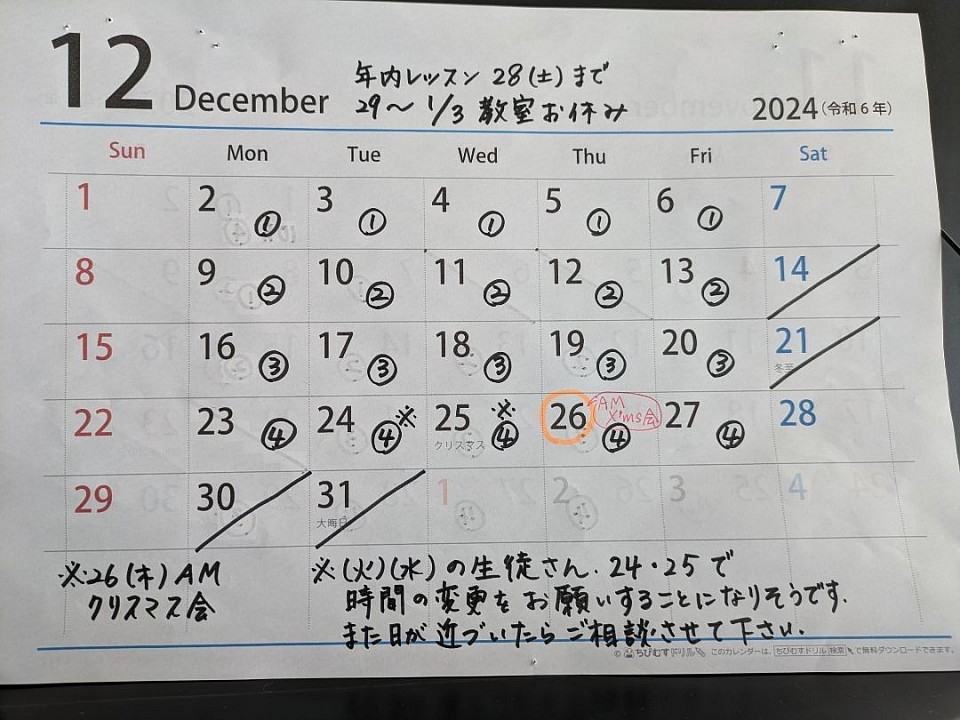 12 December
年内レッスン 28(土)まで
29〜1/3 教室お休み
2024(令和6年)
Sun Mon Tue Wed Thu Fri Sat
1 2 ① 3 ① 4 ① 5 ① 6 ① 7
8 9 ② 10 ② 11 ② 12 ② 13 ② 14
15 16 ③ 17 ③ 18 ③ 19 ③ 20 ③ 21 冬至
22 23 ④ 24 ④ ※ 25 クリスマス ④ ※ 26 ④ AM X'ms会 27 ④ 28
29 30 31 大晦日 1 2 3 4
※26(木)AM
クリスマス会
※(火)(水)の生徒さん.24・25で
時間の変更をお願いすることになりそうです.
また日が近づいたらご相談させて下さい.
© ちびむすドリル このカレンダーは、ちびむすドリル 検索 で無料ダウンロードできます。